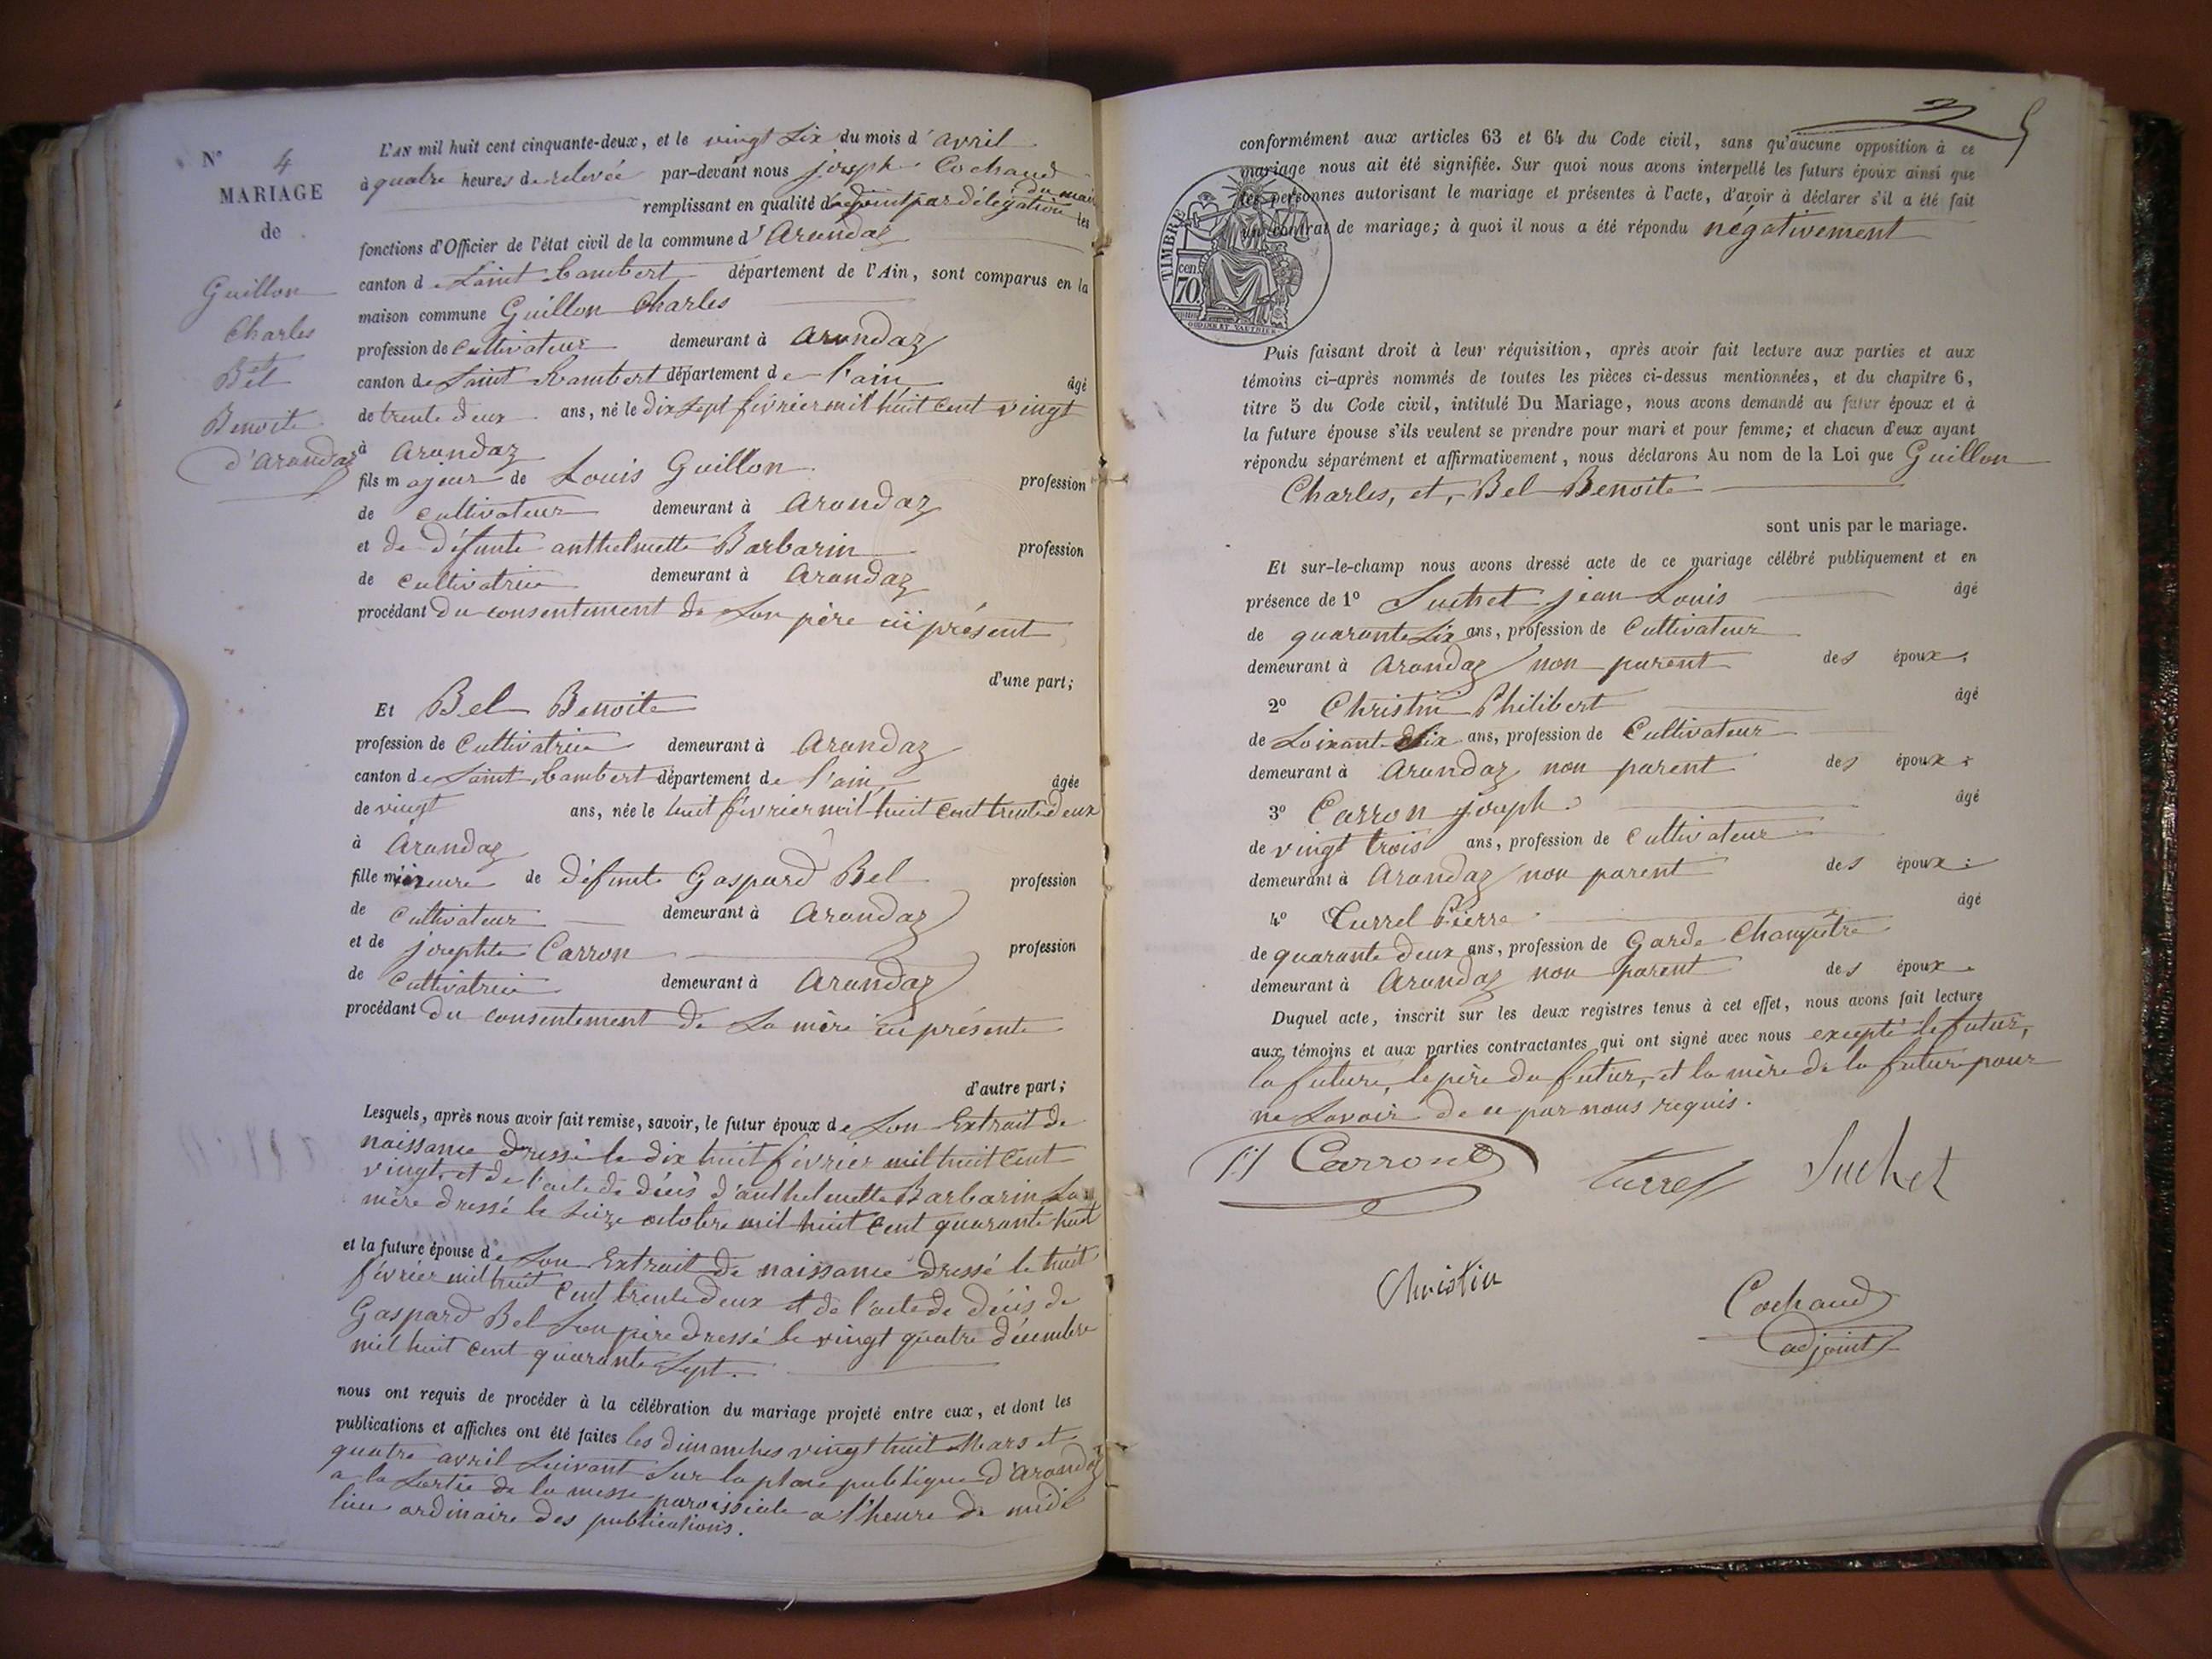 N° 4
MARIAGE
de
Guillon
Charles
et
Bel
Benoite
d'Arandaz
L'AN mil huit cent cinquante-deux, et le vingt six du mois d'avril
à quatre heures de relevée par-devant nous joseph Cochaud
remplissant en qualité d'adjoint par délégation du maire les
fonctions d'Officier de l'état civil de la commune d'Arandaz
canton de Saint Rambert département de l'Ain, sont comparus en la
maison commune Guillon Charles
profession de cultivateur demeurant à Arandaz
canton de Saint Rambert département de l'ain âgé
de trente deux ans, né le dix sept février mil huit cent vingt
à Arandaz
fils majeur de Louis Guillon profession
de cultivateur demeurant à Arandaz
et de défunte anthelmette Barbarin profession
de cultivatrice demeurant à Arandaz
procédant du consentement de son père ici présent
d'une part;
Et Bel Benoite
profession de Cultivatrice demeurant à Arandaz
canton de Saint Rambert département de l'ain, âgée
de vingt ans, née le huit février mil huit cent trente deux
à Arandaz
fille mineure de défunt Gaspard Bel profession
de cultivateur demeurant à Arandaz
et de josephte Carron profession
de Cultivatrice demeurant à Arandaz
procédant du consentement de sa mère ici présente
d'autre part;
Lesquels, après nous avoir fait remise, savoir, le futur époux de son Extrait de
naissance dressé le dix huit février mil huit cent
vingt, et de l'acte de décès d'anthelmette Barbarin sa
mère dressé le seize octobre mil huit cent quarante huit
et la future épouse de son Extrait de naissance dressé le huit
février mil huit cent trente deux et de l'acte de décès de
Gaspard Bel son père dressé le vingt quatre décembre
mil huit cent quarante sept.
nous ont requis de procéder à la célébration du mariage projeté entre eux, et dont les
publications et affiches ont été faites les dimanches vingt huit Mars et
quatre avril suivant sur la place publique d'Arandaz
a la sortie de la messe paroissiale a l'heure de midi
lieu ordinaire des publications.
conformément aux articles 63 et 64 du Code civil, sans qu'aucune opposition à ce
mariage nous ait été signifiée. Sur quoi nous avons interpellé les futurs époux ainsi que
les personnes autorisant le mariage et présentes à l'acte, d'avoir à déclarer s'il a été fait
un contrat de mariage; à quoi il nous a été répondu négativement
TIMBRE
70 cen.
Puis faisant droit à leur réquisition, après avoir fait lecture aux parties et aux
témoins ci-après nommés de toutes les pièces ci-dessus mentionnées, et du chapitre 6,
titre 5 du Code civil, intitulé Du Mariage, nous avons demandé au futur époux et à
la future épouse s'ils veulent se prendre pour mari et pour femme; et chacun d'eux ayant
répondu séparément et affirmativement, nous déclarons Au nom de la Loi que Guillon
Charles, et, Bel Benoite
sont unis par le mariage.
Et sur-le-champ nous avons dressé acte de ce mariage célébré publiquement et en
présence de 1° Suchet jean Louis âgé
de quarante six ans, profession de Cultivateur
demeurant à Arandaz non parent des époux;
2° Christin Philibert âgé
de soixante dix ans, profession de Cultivateur
demeurant à Arandaz non parent des époux;
3° Carron joseph âgé
de vingt trois ans, profession de cultivateur
demeurant à Arandaz non parent des époux;
4° Turrel Pierre âgé
de quarante deux ans, profession de Garde Champêtre
demeurant à Arandaz non parent des époux.
Duquel acte, inscrit sur les deux registres tenus à cet effet, nous avons fait lecture
aux témoins et aux parties contractantes qui ont signé avec nous excepté le futur,
la future, le père du futur, et la mère de la future pour
ne savoir de ce par nous requis.
Carron Turrel Suchet
Christin Cochaud
adjoint